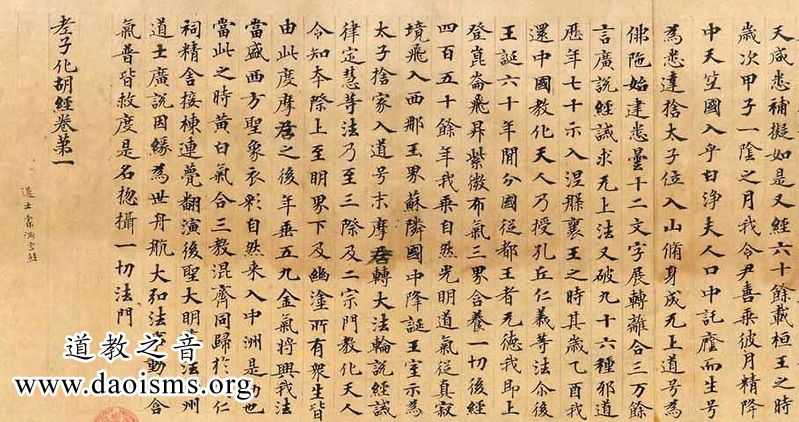 天咸悉補擬如是又經六十餘載桓王之時
歲次甲子一陰之月我令尹喜乘彼月精降
中天笁國入乎白淨夫人口中託廕而生号
為悉達捨太子位入山脩身成无上道号為
佛陁始建悉曇十二文字展轉離合三万餘
言廣說經誡求无上法又破九十六種邪道
歷年七十示入涅槃襄王之時其歲乙酉我
還中國教化天人乃授孔丘仁義等法尒後
王誕六十年閒分國從都王者无德我即上
登崑崙飛昇紫微布氣三界含養一切後經
四百五十餘年我乘自然光明道氣從真寂
境飛入西那王界蘇隣國中降誕王室示為
太子捨家入道号末摩君轉大法輪說經誡
律定慧等法乃至三際及二宗門教化天人
令知本際上至明界下及幽塗所有衆生皆
由此度摩君之後年垂五九金氣將興我法
當盛西方聖象衣彩自然來入中洲是効也
當此之時黃白氣合三教混齊同歸於仁
祠精舍接棟連甍翻演後聖大明法洲
道士廣說因緣為世舟航大弘法動含
氣普皆救度是名惣攝一切法門
老子化胡經卷第一
道士索洞玄經
道教之音
www.daoisms.org